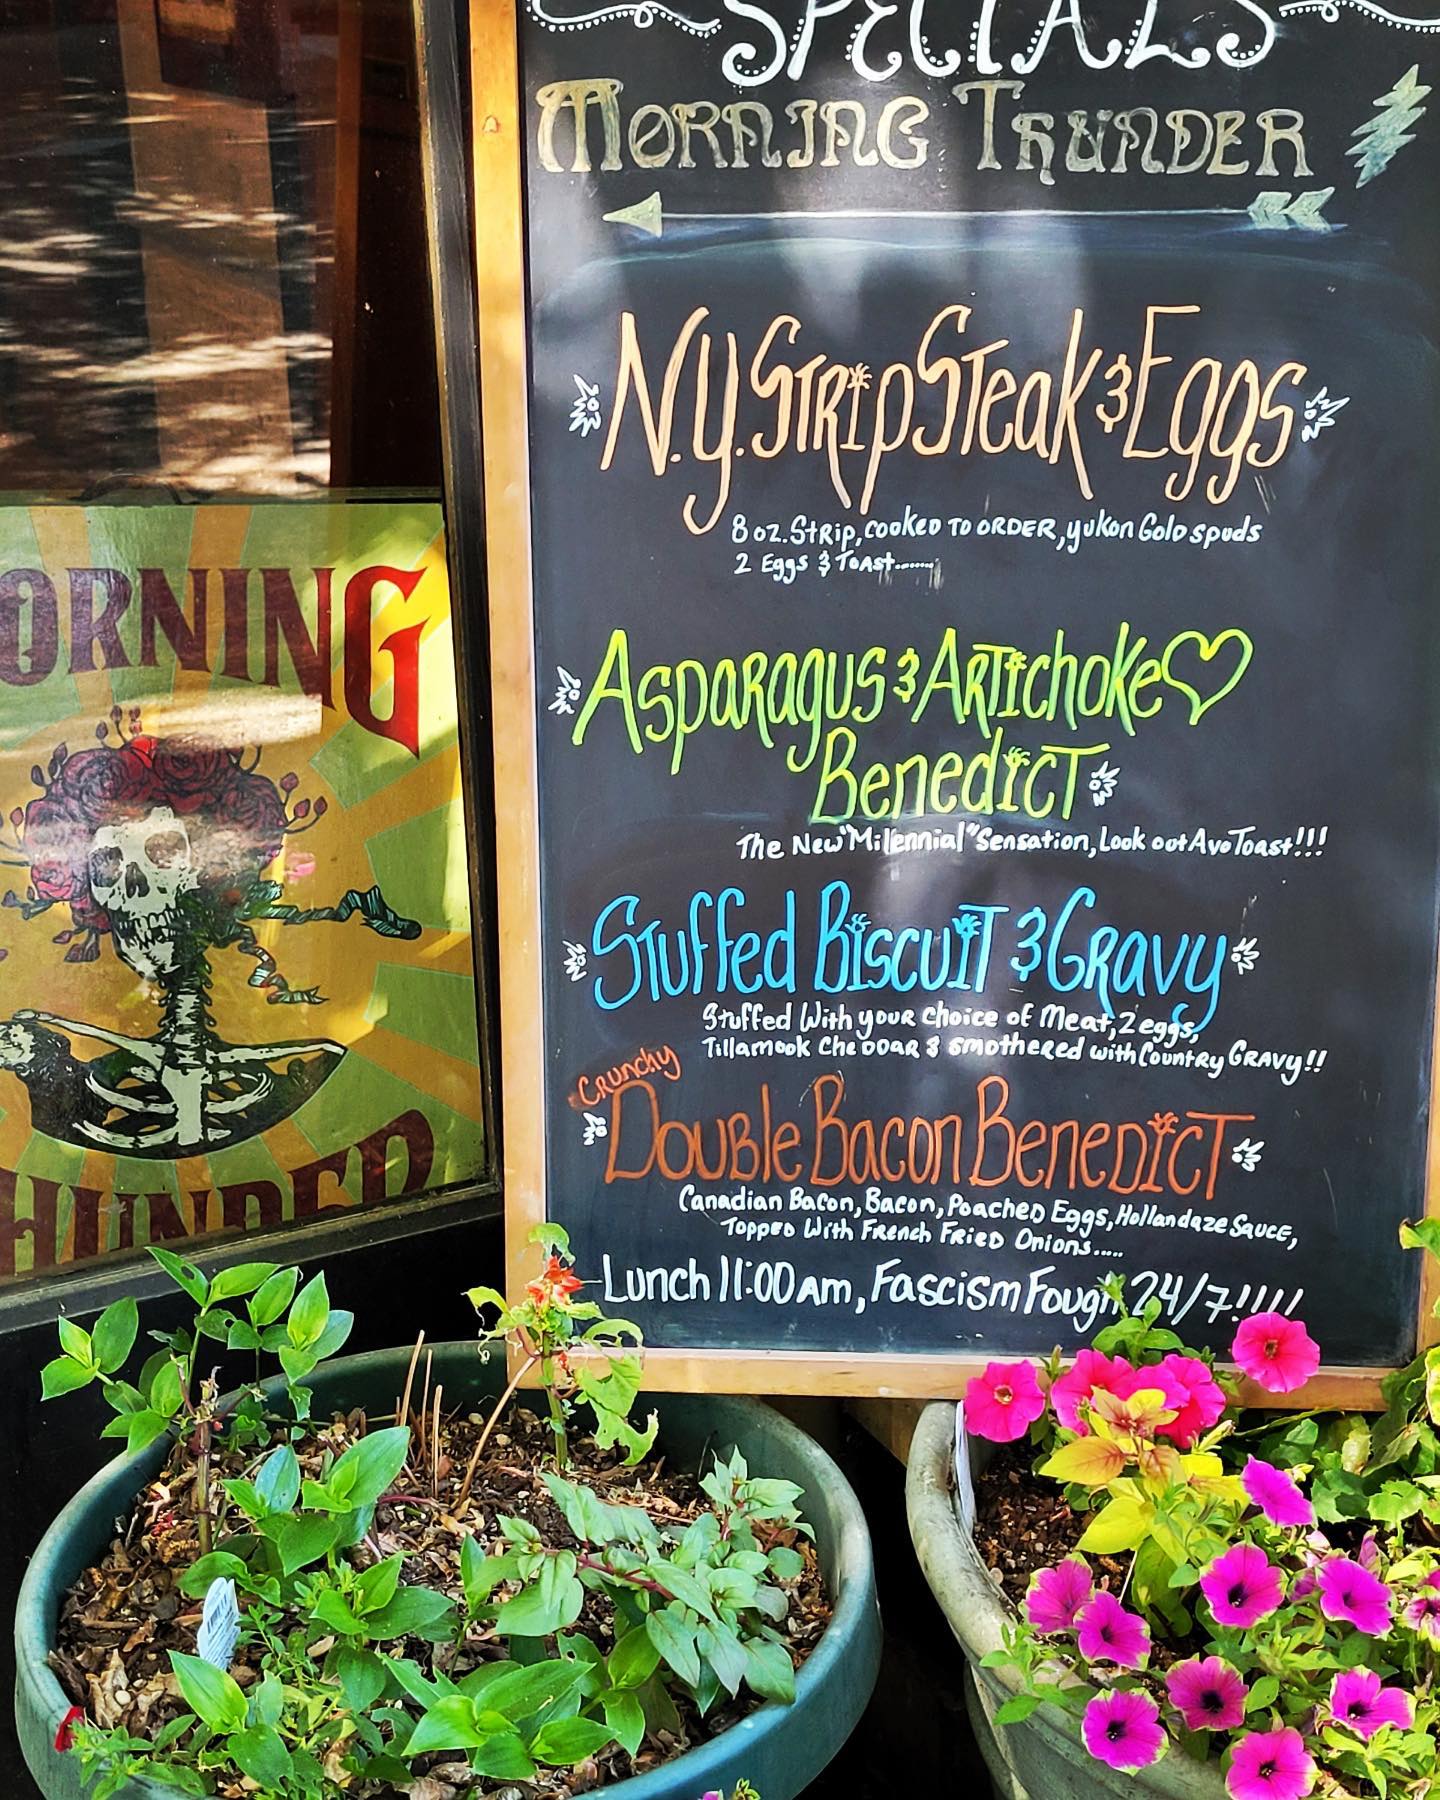 SPECIALS
MORNING THUNDER
N.Y. Strip Steak & Eggs
8 oz. Strip, cooked to order, yukon Gold spuds
2 Eggs & Toast........
Asparagus & Artichoke
Benedict
The New "Millennial" Sensation, Look out Avo Toast!!!
Stuffed Biscuit & Gravy
Stuffed With your choice of Meat, 2 eggs,
Tillamook Cheddar & smothered with Country Gravy!!
Crunchy
Double Bacon Benedict
Canadian Bacon, Bacon, Poached Eggs, Hollandaze Sauce,
Topped With French Fried Onions.....
Lunch 11:00 am, Fascism Fough 24/7!!!!
ORNING
HUNDER